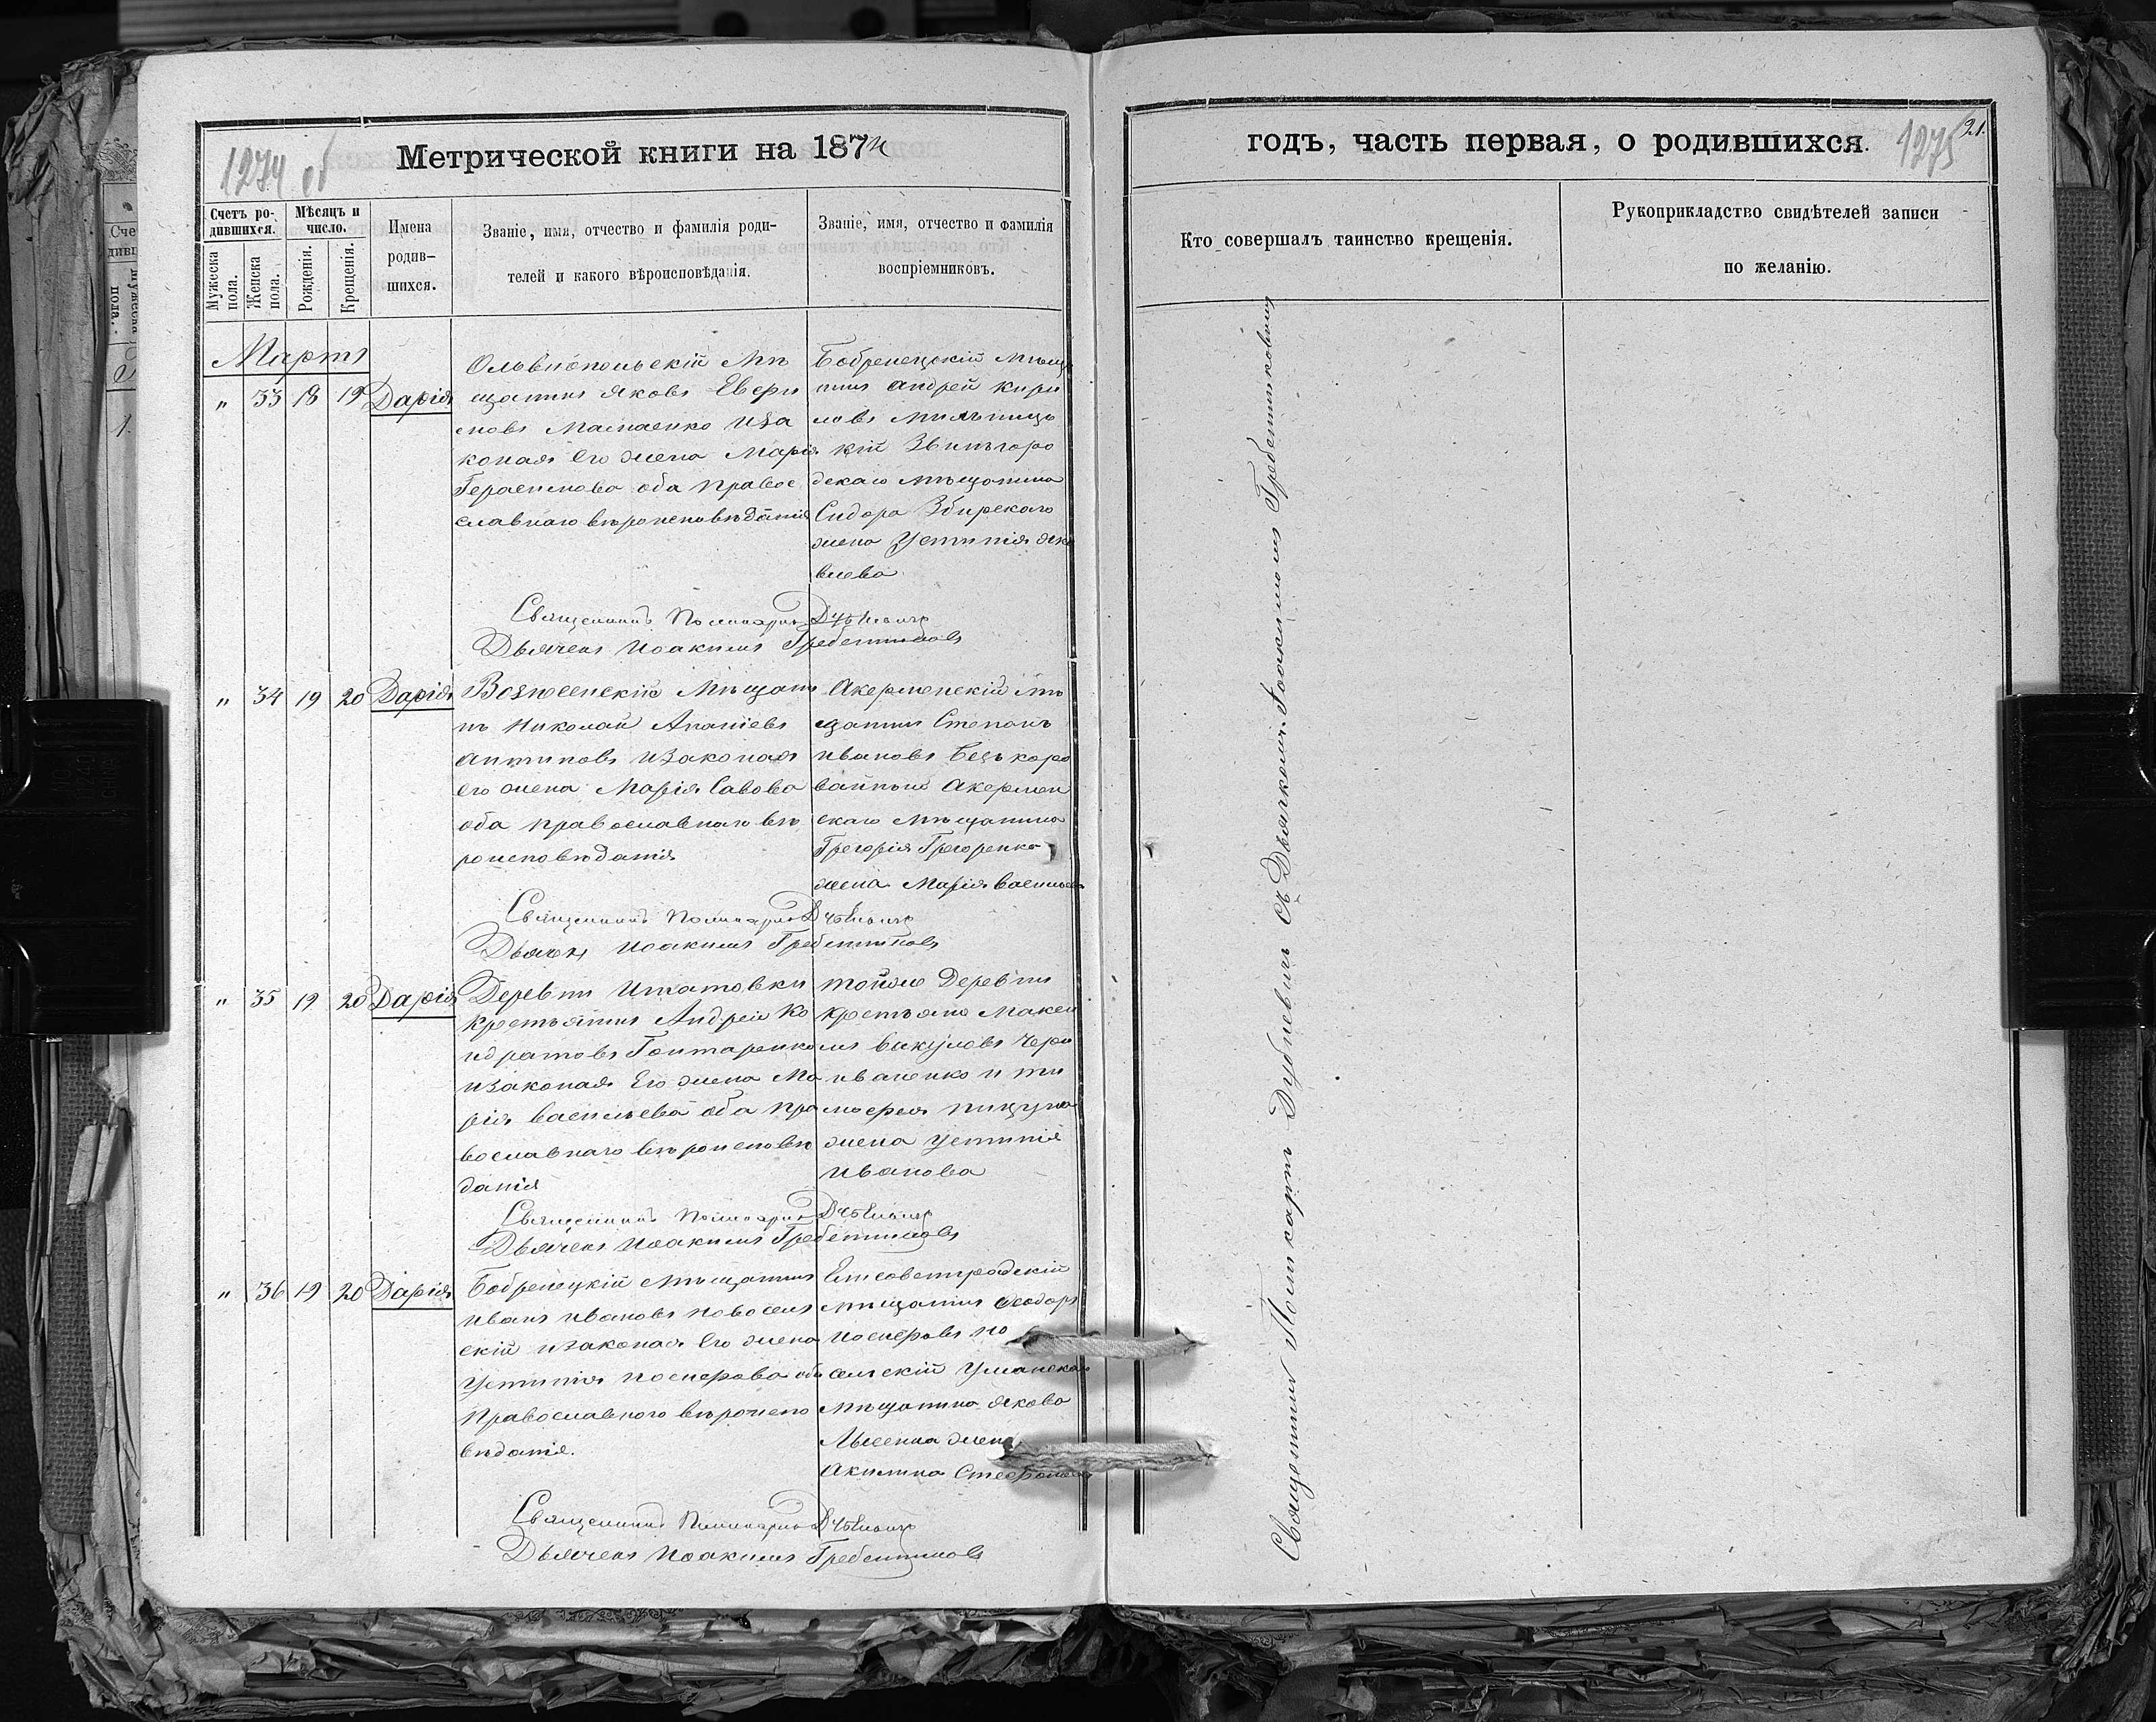 1274 об
Метрической книги на 187
Счетъ ро-
дившихся.
Мѣсяцъ и
число.
Мужеска
пола.
Женска
пола.
Рожденія.
Крещенія.
Имена
родив-
шихся.
Званіе, имя, отчество и фамилія роди-
телей и какого вѣроисповѣданія.
Званіе, имя, отчество и фамилія
воспріемниковъ.
Мартъ
" 33 18 19 Дарія
Ольвіопольскій Мѣ
щанинъ Яковъ
Матаенко и За
коная его жена Марія
Герасимова оба Правос
славнаго вѣроисповѣданія
Бобренецкій Мѣщ
нинъ Андрей Кири
ловъ
кій Звинъгоро
дскаго мѣщанина
Сидора Збирскаго
жена Устинія Яко
влева
Священникъ Поликарпъ Дубневичъ
Дьячекъ Иоакимъ Гребенниковъ
" 34 19 20 Дарія
Вознесенскій Мѣщани
нъ Николай Ананіевъ
Антиповъ и Законая
его жена Марія Савова
оба православнаго вѣ
роисповѣданія
Акерменскій мѣ
щанинъ Степанъ
Ивановъ Безъкоро
вайный Акермен
скаго мѣщанина
Григорія Григоренка
жена Марія Васильева
Священникъ Поликарпъ Дубневичъ
Дьячекъ Иоакимъ Гребенниковъ
" 35 19 20 Дарія
Деревни Игнатовки
Крестьянинъ Андрей Ко
ндратовъ Гонтаренко
и Законая Его жена Ма
рія Васильева оба пра
вославнаго вѣроисповѣ
данія
тойже Деревни
Крестьяне Макси
мъ Викуловъ Чери
иваненко и Ти
мофея Пицула
жена Устинія
Иванова
Священникъ Поликарпъ Дубневичъ
Дьячекъ Иоакимъ Гребенниковъ
" 36 19 20 Дарія
Бобренецкій Мѣщанинъ
Иванъ Ивановъ Новосель
скій и Законая Его жена
Устинія Носперова оба
Православнаго вѣроиспо
вѣданія.
Елисоветградскій
мѣщанинъ Феодоръ
сельскій Уманскаго
мѣщанина Якова
Лысенка жена
Акилина Стефанова
Священникъ Поликарпъ Дубневичъ
Дьячекъ Иоакимъ Гребенниковъ
годъ, часть первая, о родившихся.
1275
21.
Кто совершалъ таинство крещенія.
Рукоприкладство свидѣтелей записи
по желанію.
Священникъ Поликарпъ Дубневичъ съ Дьячкомъ Іоакимомъ Гребенниковымъ